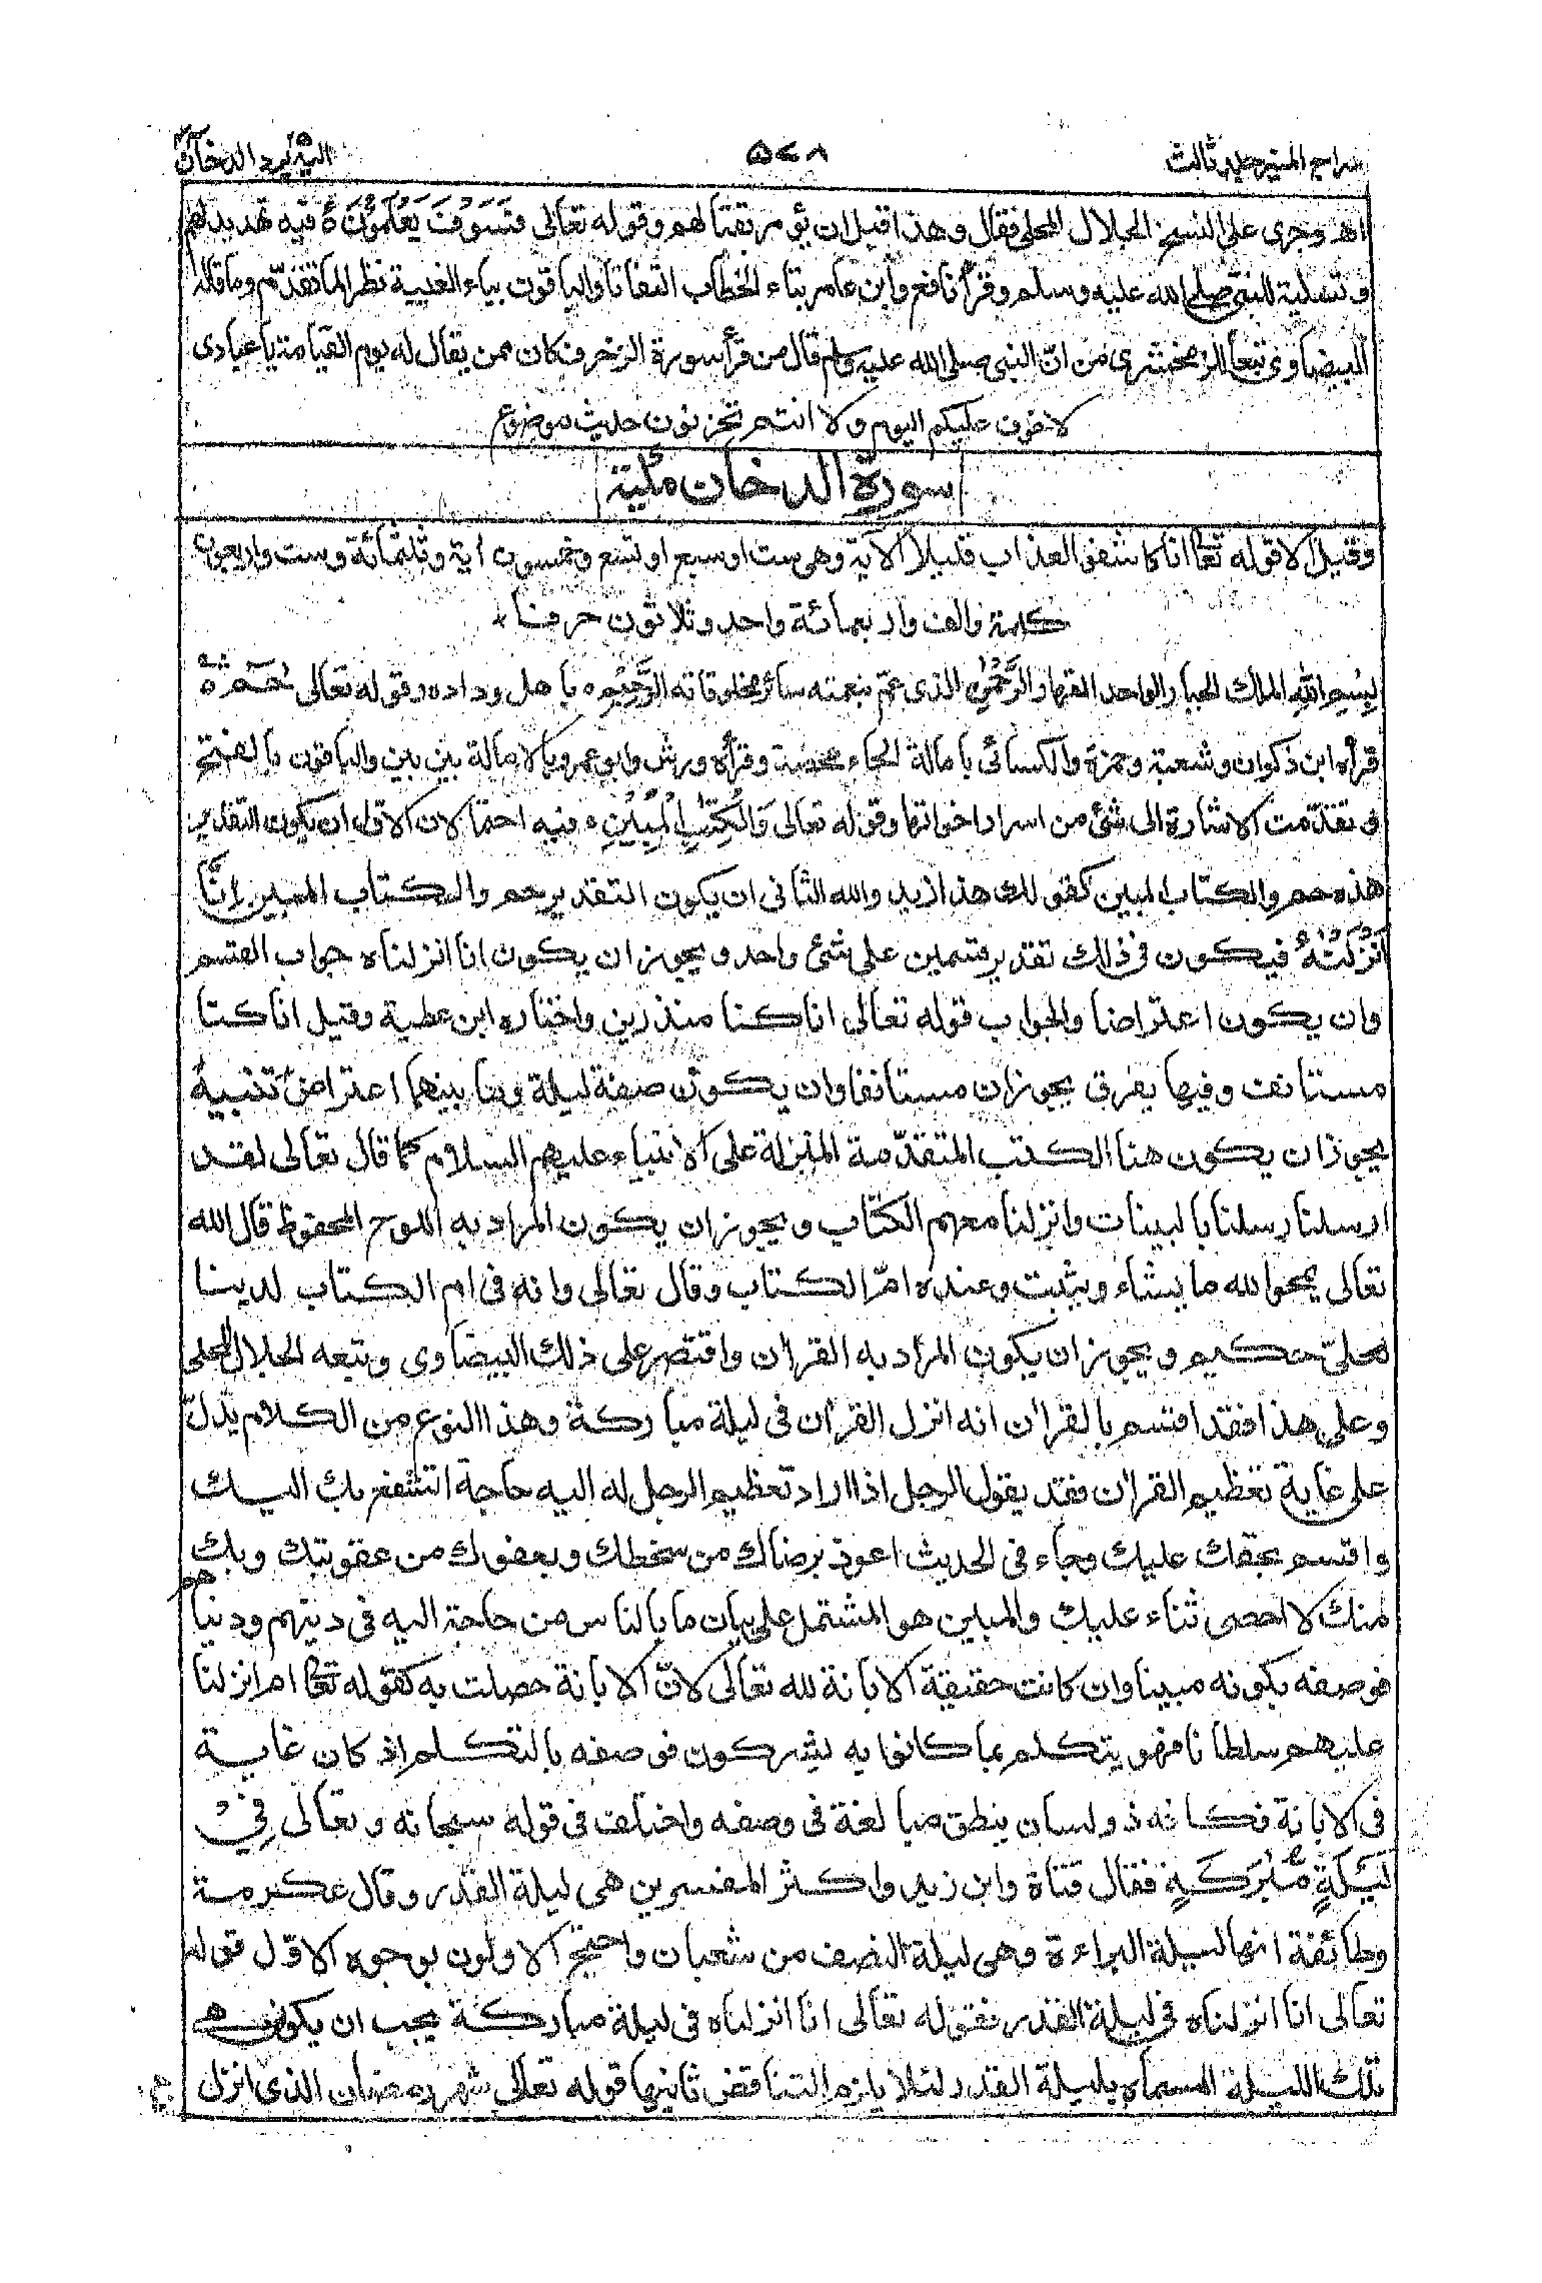 سراج المنير جلد ثالث ٥٧٨ اليه يرد الدخان
اهـ وجرى على النسخ الجلال المحلى فقال وهذا قبل ان يؤمر بقتالهم وقوله تعالى فَسَوْفَ يَعْلَمُوْنَ ه فيه تهديد لهم
وتسلية للنبى صلى الله عليه وسلم وقرأ نافع وابن عامر بتاء الخطاب التفاتا والباقون بياء الغيبة نظرا لما تقدّم وما قاله
البيضاوى تبعا للزمخشرى من انّ النبى صلى الله عليه وسلم قال من قرأ سورة الزخرف كان ممن يقال له يوم القيامة يا عبادى
لا خوف عليكم اليوم ولا انتم تحزنون حديث موضوع
سورة الدخان مكية
وقيل الا قوله تعا انا كاشفو العذاب قليلا الآية وهى ست او سبع او تسع وخمسون اية وثلثمائة وست واربعون
كلمة والف واربعمائة واحد وثلاثون حرفا
بِسْمِ اللّٰهِ الملك الجبار الواحد القهار الرَّحْمٰنِ الذى عمّ بنعمته سائر مخلوقاته الرَّحِيْمِ ه باهل وداده وقوله تعالى حٰمۤ ه
قرأه ابن ذكوان وشعبة وحمزة والكسائى بامالة الحاء محضة وقرأه ورش وابو عمرو بالامالة بين بين والباقون بالفتح
قد تقدّمت الاشارة الى شئ من اسرار اخواتها وقوله تعالى وَالْكِتٰبِ الْمُبِيْنِ ه فيه احتمالان الاول ان يكون التقدير
هذه حم والكتاب المبين كقولك هذا زيد والله الثانى ان يكون التقدير حم والكتاب المبين اِنَّا
اَنْزَلْنٰهُ فيكون فى ذلك تقدير قسمين على شئ واحد ويجوز ان يكون انا انزلناه جواب القسم
وان يكون اعتراضا والجواب قوله تعالى انا كنا منذرين واختاره ابن عطية وقيل انا كنا
مستانف وفيها يفرق يجوز ان مستانفا وان يكون صفة ليلة وما بينهما اعتراض تنبيه
يجوز ان يكون هنا الكتب المتقدّمة المنزلة على الانبياء عليهم السلام كما قال تعالى لقد
ارسلنا رسلنا بالبينات وانزلنا معهم الكتاب ويجوز ان يكون المراد به اللوح المحفوظ قال الله
تعالى يمحوا لله ما يشاء ويثبت وعنده امّ الكتاب وقال تعالى وانه فى ام الكتاب لدينا
لعلىّ حكيم ويجوز ان يكون المراد به القران واقتصر على ذلك البيضاوى وتبعه الجلال المحلى
وعلى هذا فقد اقسم بالقران انه انزل القران فى ليلة مباركة وهذا النوع من الكلام يدلّ
على غاية تعظيم القران فقد يقول الرجل اذا اراد تعظيم الرجل له اليه حاجة اتشفع بك اليك
واقسم بحقك عليك وجاء فى الحديث اعوذ برضاك من سخطك وبعفوك من عقوبتك وبك
منك لا احصى ثناء عليك والمبين هو المشتمل على بيان ما بالناس من حاجة اليه فى دينهم ودنياهم
فوصفه بكونه مبينا وان كانت حقيقة الابانة لله تعالى لانّ الابانة حصلت به كقوله تعا ام انزلنا
عليهم سلطانا فهو يتكلم بما كانوا به يشركون فوصفه بالتكلم اذ كان غاية
فى الابانة فكانه ذو لسان ينطق مبالغة فى وصفه واختلف فى قوله سبحانه وتعالى فِىْ
لَيْلَةٍ مُّبٰرَكَةٍ فقال قتاة وابن زيد واكثر المفسرين هى ليلة القدر وقال عكرمة
وطائفة انها ليلة البراءة وهى ليلة النصف من شعبان واحتج الاولون بوجوه الاوّل قوله
تعالى انا انزلناه فى ليلة القدر فقوله تعالى انا انزلناه فى ليلة مباركة يجب ان يكون هى
تلك الليلة المسماه بليلة القدر لئلا يلزم التناقض ثانيها قوله تعالى شهر رمضان الذى انزل